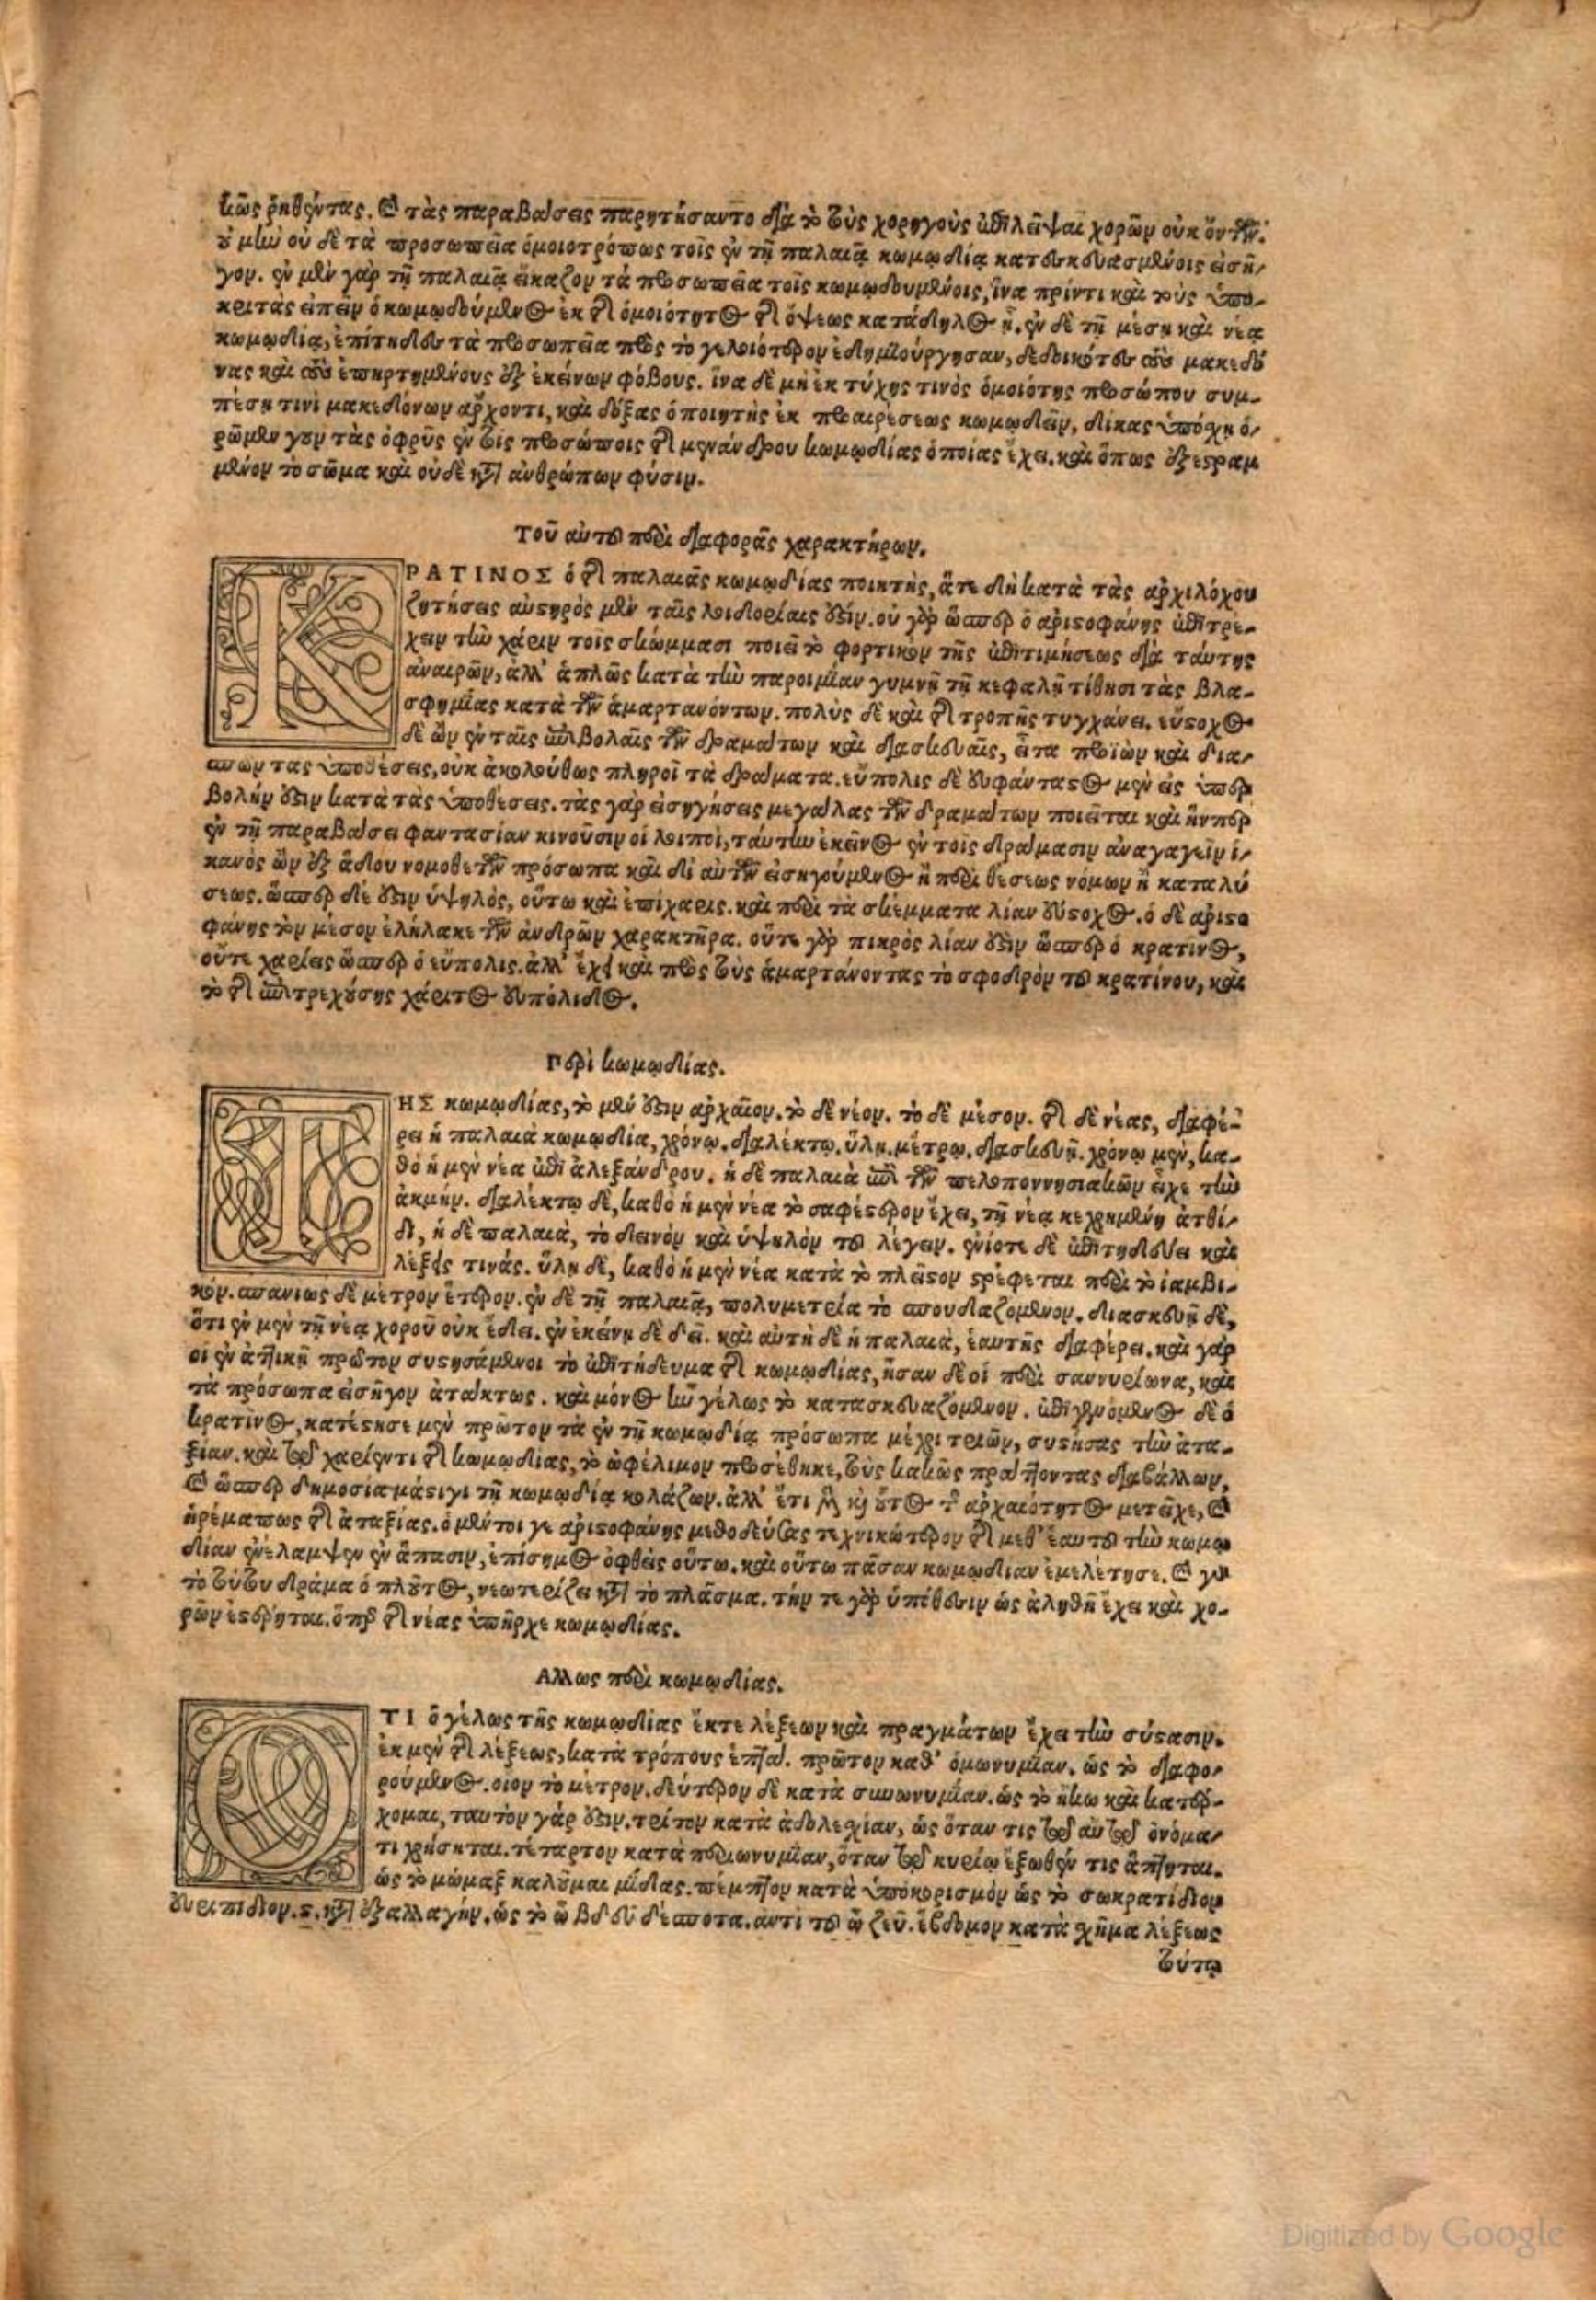 κῶς ῥηθέντας. καὶ τὰς παραβάσεις παρῃτήσαντο διὰ τὸ τοὺς χορηγοὺς ἐπιλεῖψαι χορῶν οὐκ ὄντων.
οὐ μὴν οὐδὲ τὰ προσωπεῖα ὁμοιοτρόπως τοῖς ἐν τῇ παλαιᾷ κωμῳδίᾳ κατεσκευασμένοις εἰσῆ-
γον. ἐν μὲν γὰρ τῇ παλαιᾷ εἴκαζον τὰ προσωπεῖα τοῖς κωμῳδουμένοις, ἵνα πρίν τι καὶ τοὺς ὑπο-
κριτὰς εἰπεῖν ὁ κωμῳδούμενος ἐκ τῆς ὁμοιότητος τῆς ὄψεως κατάδηλος ᾖ. ἐν δὲ τῇ μέσῃ καὶ νέᾳ
κωμῳδίᾳ, ἐπίτηδες τὰ προσωπεῖα πρὸς τὸ γελοιότερον ἐδημιούργησαν, δεδοικότες τοὺς μακεδό
νας καὶ τοὺς ἐπηρτημένους ἐξ ἐκείνων φόβους. ἵνα δὲ μὴ ἐκ τύχης τινὸς ὁμοιότης προσώπου συμ-
πέσῃ τινὶ μακεδόνων ἄρχοντι, καὶ δόξας ὁ ποιητὴς ἐκ προαιρέσεως κωμῳδεῖν, δίκας ὑπόσχῃ ὁ-
ρῶμεν γοῦν τὰς ὀφρῦς ἐν τοῖς προσώποις τῆς μενάνδρου κωμῳδίας ὁποίας ἔχει. καὶ ὅπως ἐξεστραμ
μένον τὸ σῶμα καὶ οὐδὲ κατὰ ἀνθρώπων φύσιν.
Τοῦ αὐτοῦ περὶ διαφορᾶς χαρακτήρων.
ΚΡΑΤΙΝΟΣ ὁ τῆς παλαιᾶς κωμῳδίας ποιητὴς, ἅτε δὴ κατὰ τὰς ἀρχιλόχου
ζητήσεις αὐστηρὸς μὲν ταῖς λοιδορίαις ἐστίν. οὐ γὰρ ὥσπερ ὁ ἀριστοφάνης ἐπιτρέ-
χειν τὴν χάριν τοῖς σκώμμασι ποιεῖ τὸ φορτικὸν τῆς ἐπιτιμήσεως διὰ ταύτης
ἀναιρῶν, ἀλλ' ἁπλῶς κατὰ τὴν παροιμίαν γυμνῇ τῇ κεφαλῇ τίθησι τὰς βλα-
σφημίας κατὰ τῶν ἁμαρτανόντων. πολὺς δὲ καὶ τῆς τροπῆς τυγχάνει. εὔστοχος
δὲ ὢν ἐν ταῖς ἐπιβολαῖς τῶν δραμάτων καὶ διασκευαῖς, εἶτα προϊὼν καὶ δια-
σπῶν τὰς ὑποθέσεις, οὐκ ἀκολούθως πληροῖ τὰ δράματα. εὔπολις δὲ εὐφάνταστος μὲν εἰς ὑπερ
βολήν ἐστιν κατὰ τὰς ὑποθέσεις. τὰς γὰρ εἰσηγήσεις μεγάλας τῶν δραμάτων ποιεῖται καὶ ἥνπερ
ἐν τῇ παραβάσει φαντασίαν κινοῦσιν οἱ λοιποὶ, ταύτην ἐκεῖνος ἐν τοῖς δράμασιν ἀναγαγεῖν ἱ-
κανὸς ὢν ἐξ ᾅδου νομοθετῶν πρόσωπα καὶ δι' αὐτῶν εἰσηγούμενος ἢ περὶ θέσεως νόμων ἢ καταλύ
σεως. ὥσπερ δέ ἐστιν ὑψηλὸς, οὕτω καὶ ἐπίχαρις. καὶ περὶ τὰ σκέμματα λίαν εὔστοχος. ὁ δὲ ἀριστο
φάνης τὸν μέσον ἐλήλακε τῶν ἀνδρῶν χαρακτῆρα. οὔτε γὰρ πικρὸς λίαν ἐστὶν ὥσπερ ὁ κρατῖνος,
οὔτε χαρίεις ὥσπερ ὁ εὔπολις. ἀλλ' ἔχει καὶ πρὸς τοὺς ἁμαρτάνοντας τὸ σφοδρὸν τοῦ κρατίνου, καὶ
τὸ τῆς ἐπιτρεχούσης χάριτος εὐπόλιδος.
Περὶ κωμῳδίας.
ΤΗΣ κωμῳδίας, τὸ μέν ἐστιν ἀρχαῖον. τὸ δὲ νέον. τὸ δὲ μέσον. τῆς δὲ νέας, διαφέ-
ρει ἡ παλαιὰ κωμῳδία, χρόνῳ. διαλέκτῳ. ὕλῃ. μέτρῳ. διασκευῇ. χρόνῳ μὲν, κα-
θὸ ἡ μὲν νέα ἐπὶ ἀλεξάνδρου. ἡ δὲ παλαιὰ ἐπὶ τῶν πελοποννησιακῶν εἶχε τὴν
ἀκμήν. διαλέκτῳ δὲ, καθὸ ἡ μὲν νέα τὸ σαφέστερον ἔχει, τῇ νέᾳ κεχρημένη ἀτθί-
δι, ἡ δὲ παλαιὰ, τὸ δεινὸν καὶ ὑψηλὸν τοῦ λέγειν. ἐνίοτε δὲ ἐπιτηδεύει καὶ
λέξεις τινάς. ὕλῃ δὲ, καθὸ ἡ μὲν νέα κατὰ τὸ πλεῖστον στρέφεται περὶ τὸ ἰαμβι-
κόν. σπανίως δὲ μέτρον ἕτερον. ἐν δὲ τῇ παλαιᾷ, πολυμετρία τὸ σπουδαζόμενον. διασκευῇ δὲ,
ὅτι ἐν μὲν τῇ νέᾳ χοροῦ οὐκ ἔδει. ἐν ἐκείνῃ δὲ δεῖ. καὶ αὐτὴ δὲ ἡ παλαιὰ, ἑαυτῆς διαφέρει. καὶ γὰρ
οἱ ἐν ἀττικῇ πρῶτον συστησάμενοι τὸ ἐπιτήδευμα τῆς κωμῳδίας, ἦσαν δὲ οἱ περὶ σαννυρίωνα, καὶ
τὰ πρόσωπα εἰσῆγον ἀτάκτως. καὶ μόνος ἦν γέλως τὸ κατασκευαζόμενον. ἐπιγενόμενος δὲ ὁ
κρατῖνος, κατέστησε μὲν πρῶτον τὰ ἐν τῇ κωμῳδίᾳ πρόσωπα μέχρι τριῶν, συστήσας τὴν ἀτα-
ξίαν. καὶ τῷ χαρίεντι τῆς κωμῳδίας, τὸ ὠφέλιμον προσέθηκε, τοὺς κακῶς πράττοντας διαβάλλων,
καὶ ὥσπερ δημοσίᾳ μάστιγι τῇ κωμῳδίᾳ κολάζων. ἀλλ' ἔτι μὲν καὶ οὗτος τῆς ἀρχαιότητος μετεῖχε, καὶ
ἠρέμα πως τῆς ἀταξίας. ὁ μέντοι γε ἀριστοφάνης μεθοδεύσας τεχνικώτερον τῆς μεθ' ἑαυτοῦ τὴν κωμῳ
δίαν ἐνέλαμψεν ἐν ἅπασιν, ἐπίσημος ὀφθεὶς οὕτω. καὶ οὕτω πᾶσαν κωμῳδίαν ἐμελέτησε. καὶ γὰρ
τὸ τούτου δρᾶμα ὁ πλοῦτος, νεωτερίζει κατὰ τὸ πλάσμα. τήν τε γὰρ ὑπόθεσιν ὡς ἀληθῆ ἔχει καὶ χο-
ρῶν ἐστέρηται. ὅπερ τῆς νέας ὑπῆρχε κωμῳδίας.
Αλλως περὶ κωμῳδίας.
ΟΤΙ ὁ γέλως τῆς κωμῳδίας ἔκ τε λέξεων καὶ πραγμάτων ἔχει τὴν σύστασιν.
ἐκ μὲν τῆς λέξεως, κατὰ τρόπους ἑπτά. πρῶτον καθ' ὁμωνυμίαν. ὡς τὸ διαφο-
ρούμενος. οἷον τὸ μέτρον. δεύτερον δὲ κατὰ συνωνυμίαν. ὡς τὸ ἥκω καὶ κατέρ-
χομαι, ταυτὸν γάρ ἐστιν. τρίτον κατὰ ἀδολεχίαν, ὡς ὅταν τις τῷ αὐτῷ ὀνόμα-
τι χρήσηται. τέταρτον κατὰ παρωνυμίαν, ὅταν τῷ κυρίῳ ἔξωθέν τις ἅπτηται.
ὡς τὸ μώμαξ καλοῦμαι μίδας. πέμπτον κατὰ ὑποκορισμὸν ὡς τὸ σωκρατίδιον
εὐριπίδιον. ϛ. κατὰ ἐξαλλαγήν. ὡς τὸ ὦ βδεῦ δέσποτα. ἀντὶ τοῦ ὦ ζεῦ. ἕβδομον κατὰ χῆμα λέξεως
τούτῳ
Digitized by Google